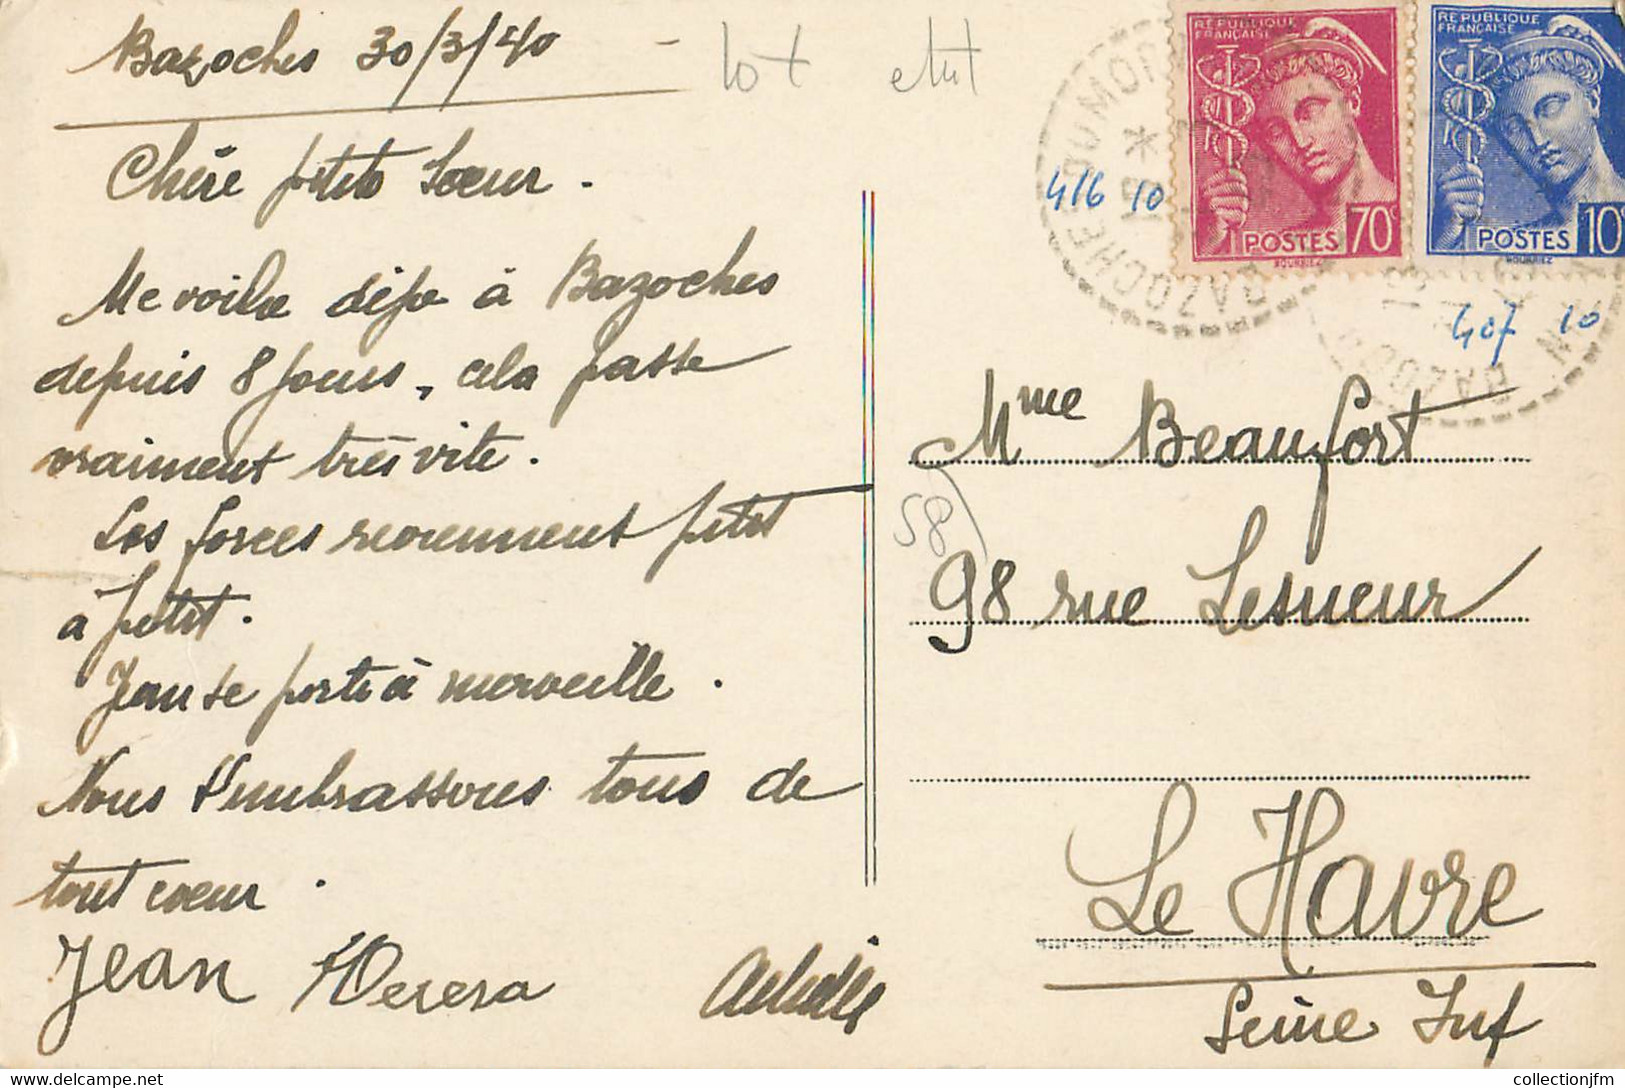 Bazoches 30/3/40
lot
Chère petite Soeur.
Me voila déja à Bazoches
depuis 8 jours, cela passe
vraiment très vite.
Les forces reviennent petit
à petit.
Jean se porte à merveille.
Nous t'embrassons tous de
tout coeur.
Jean
RÉPUBLIQUE
FRANÇAISE
70c
POSTES
RÉPUBLIQUE
FRANÇAISE
10c
POSTES
BAZOCHES DU MOR
416 10
407 10
Mme Beaufort
58
98 rue Lesueur
Le Havre
Seine Inf
collectionjfm